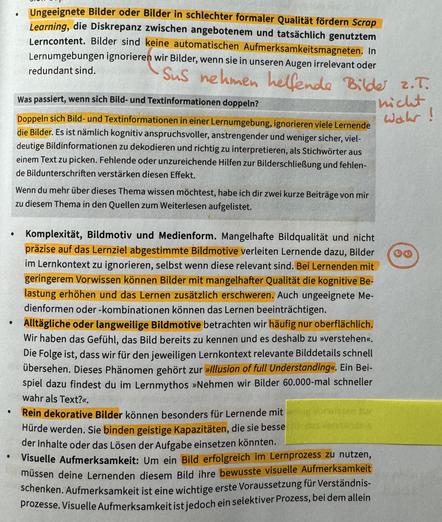 Ungeeignete Bilder oder Bilder in schlechter formaler Qualität fördern Scrap
Learning, die Diskrepanz zwischen angebotenem und tatsächlich genutztem
Lerncontent. Bilder sind keine automatischen Aufmerksamkeitsmagneten. In
Lernumgebungen ignorieren wir Bilder, wenn sie in unseren Augen irrelevant oder
redundant sind.
SuS nehmen helfende Bilder z.T.
nicht
wahr!
Was passiert, wenn sich Bild- und Textinformationen doppeln?
Doppeln sich Bild- und Textinformationen in einer Lernumgebung, ignorieren viele Lernende
die Bilder. Es ist nämlich kognitiv anspruchsvoller, anstrengender und weniger sicher, viel-
deutige Bildinformationen zu dekodieren und richtig zu interpretieren, als Stichwörter aus
einem Text zu picken. Fehlende oder unzureichende Hilfen zur Bilderschließung und fehlen-
de Bildunterschriften verstärken diesen Effekt.
Wenn du mehr über dieses Thema wissen möchtest, habe ich dir zwei kurze Beiträge von mir
zu diesem Thema in den Quellen zum Weiterlesen aufgelistet.
• Komplexität, Bildmotiv und Medienform. Mangelhafte Bildqualität und nicht
präzise auf das Lernziel abgestimmte Bildmotive verleiten Lernende dazu, Bilder
im Lernkontext zu ignorieren, selbst wenn diese relevant sind. Bei Lernenden mit
geringerem Vorwissen können Bilder mit mangelhafter Qualität die kognitive Be-
lastung erhöhen und das Lernen zusätzlich erschweren. Auch ungeeignete Me-
dienformen oder -kombinationen können das Lernen beeinträchtigen.
• Alltägliche oder langweilige Bildmotive betrachten wir häufig nur oberflächlich.
Wir haben das Gefühl, das Bild bereits zu kennen und es deshalb zu »verstehen«.
Die Folge ist, dass wir für den jeweiligen Lernkontext relevante Bilddetails schnell
übersehen. Dieses Phänomen gehört zur »Illusion of full Understanding«. Ein Bei-
spiel dazu findest du im Lernmythos »Nehmen wir Bilder 60.000-mal schneller
wahr als Text?«.
• Rein dekorative Bilder können besonders für Lernende mit
Hürde werden. Sie binden geistige Kapazitäten, die sie besse
der Inhalte oder das Lösen der Aufgabe einsetzen könnten.
• Visuelle Aufmerksamkeit: Um ein Bild erfolgreich im Lernprozess zu nutzen,
müssen deine Lernenden diesem Bild ihre bewusste visuelle Aufmerksamkeit
schenken. Aufmerksamkeit ist eine wichtige erste Voraussetzung für Verständnis-
prozesse. Visuelle Aufmerksamkeit ist jedoch ein selektiver Prozess, bei dem allein